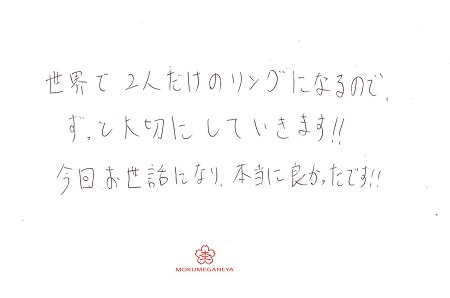 世界で2人だけのリングになるので、
ずっと大切にしていきます!!
今回お世話になり、本当に良かったです!!
MOKUMEGANEYA